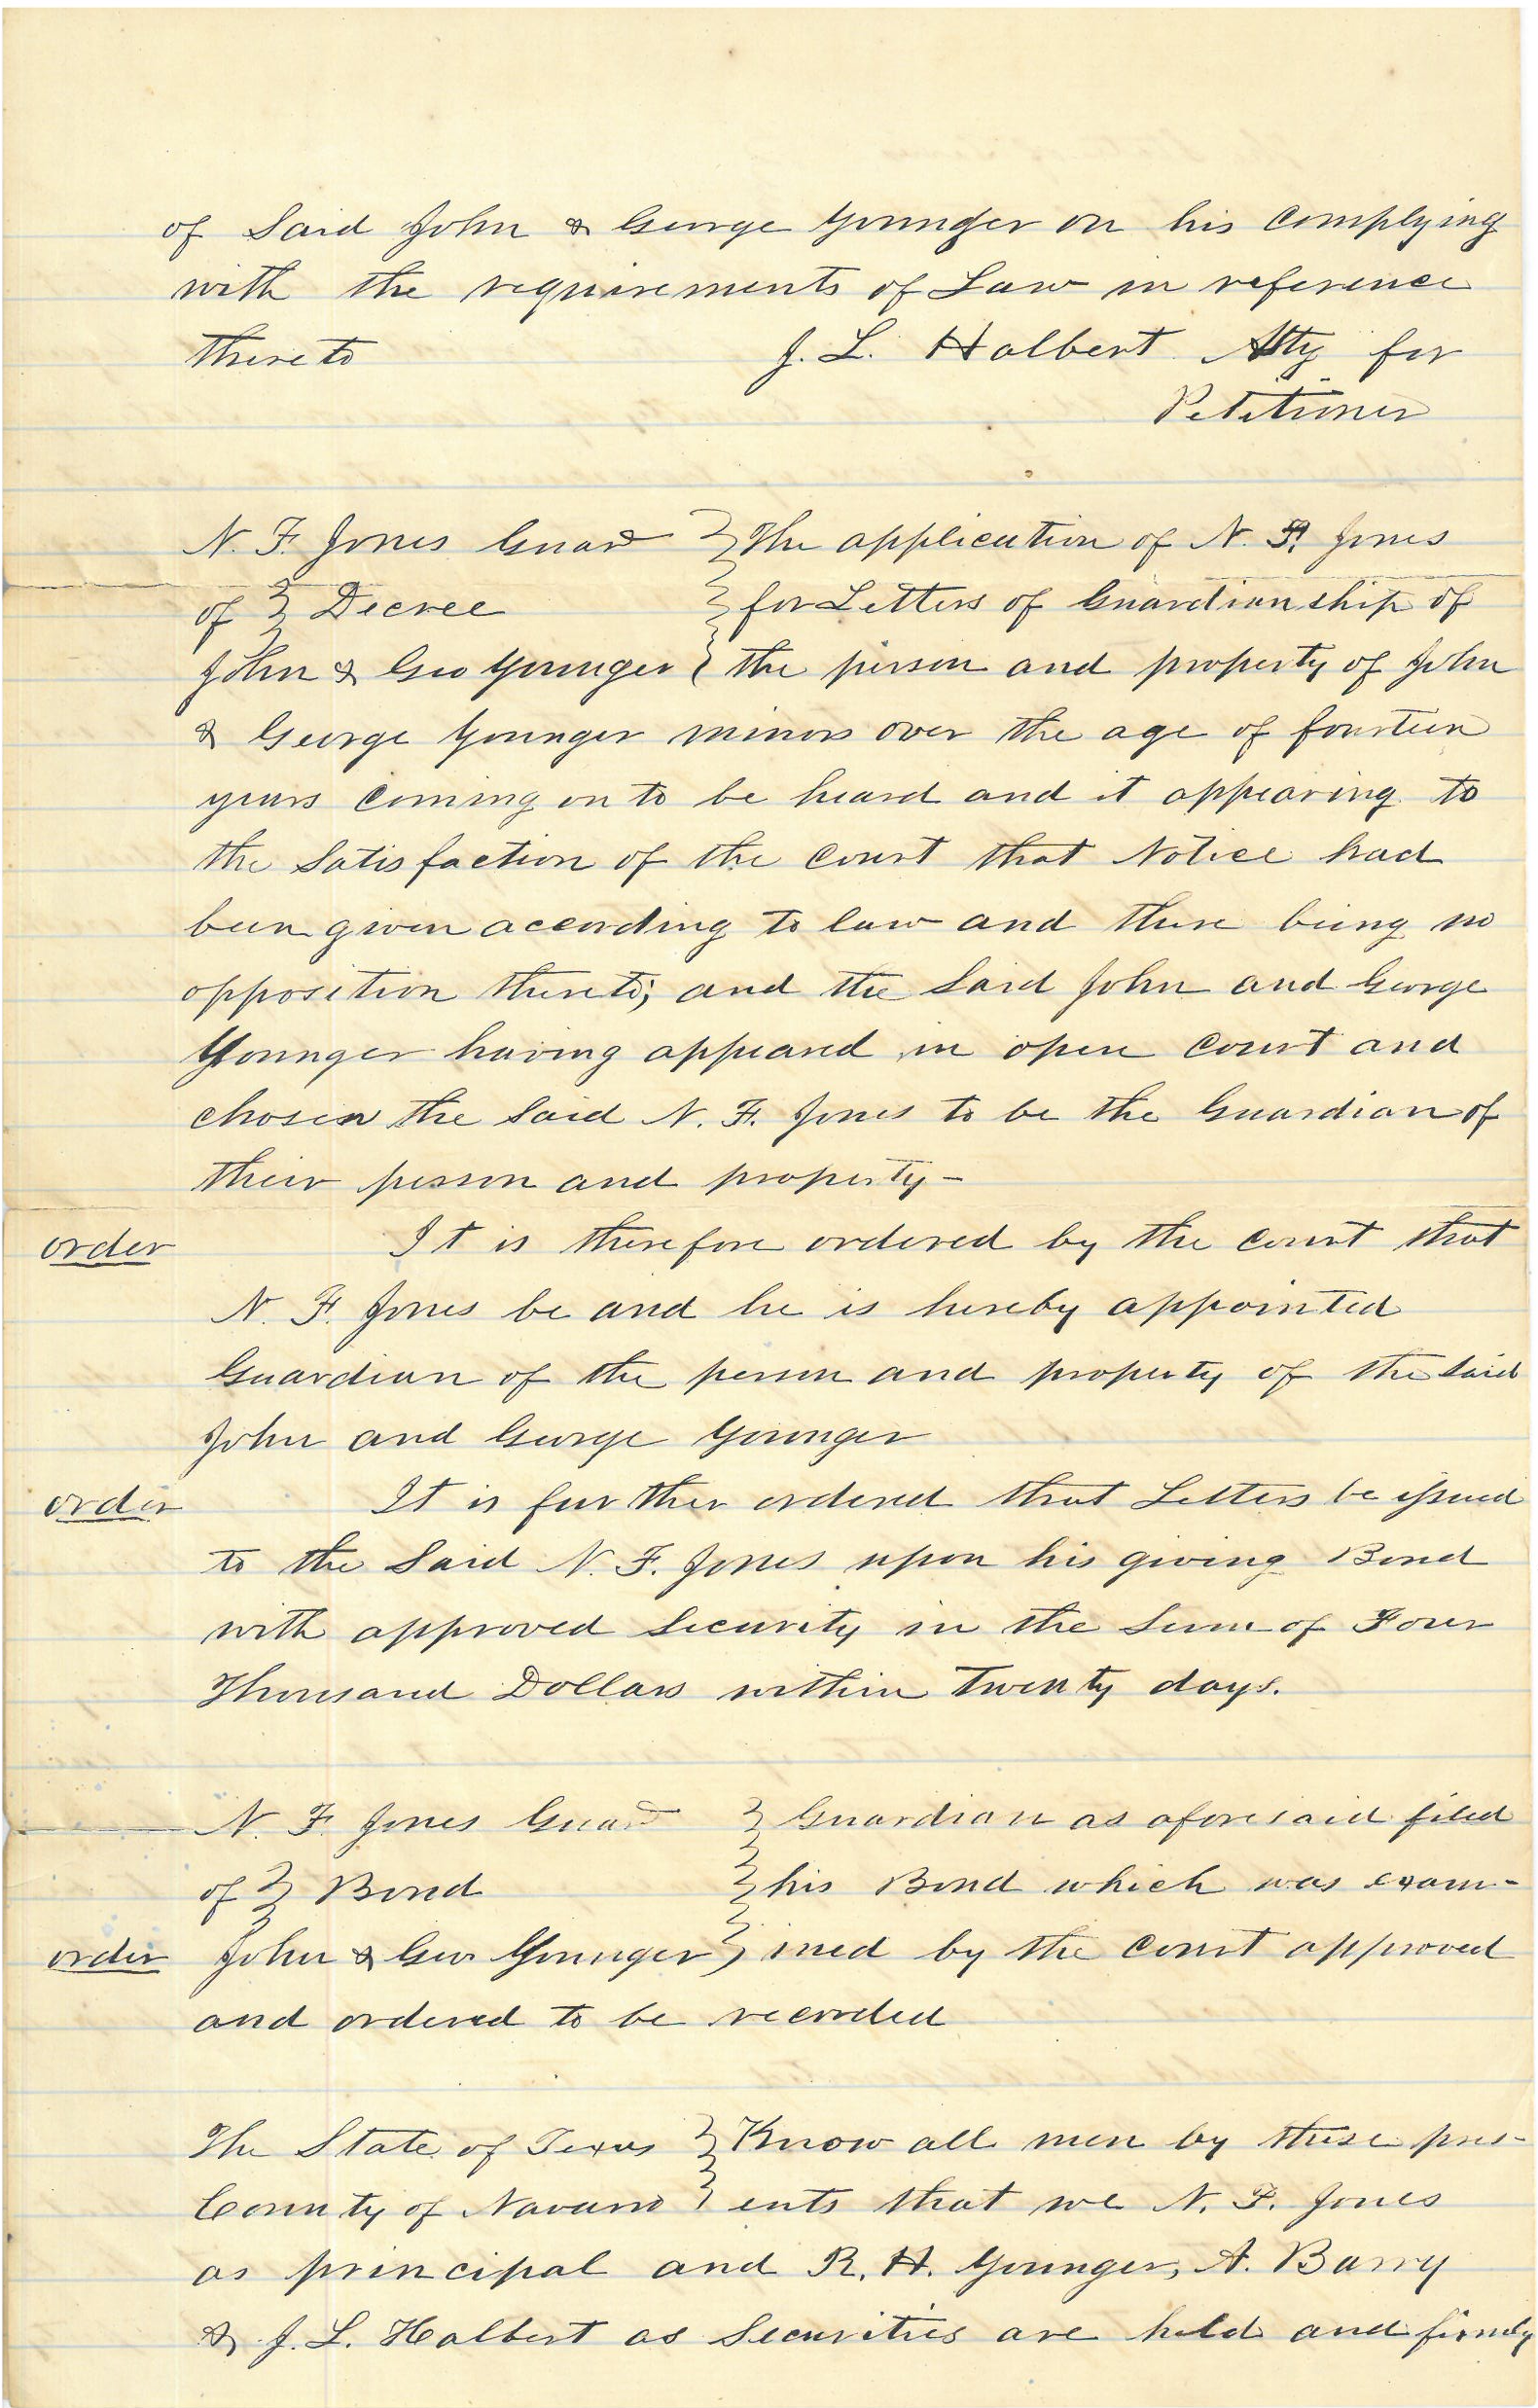 of Said John & George Younger on his complying
with the requirements of Law in reference
thereto J. L. Halbert Atty for
Petitioner
N. F. Jones Guard } The application of N. F. Jones
of } Decree } for Letters of Guardianship of
John & Geo Younger } the person and property of John
& George Younger minors over the age of fourteen
years coming on to be heard and it appearing to
the Satisfaction of the Court that Notice had
been given according to law and there being no
opposition thereto; and the Said John and George
Younger having appeared in open Court and
chosen the Said N. F. Jones to be the Guardian of
their person and property -
order It is therefore ordered by the Court that
N. F. Jones be and he is hereby appointed
Guardian of the person and property of the Said
John and George Younger
order It is further ordered that Letters be issued
to the Said N. F. Jones upon his giving Bond
with approved Security in the Sum of Four
Thousand Dollars within Twenty days.
N. F. Jones Guard } Guardian as aforesaid filed
of } Bond } his Bond which was exam-
order John & Geo Younger } ined by the Court approved
and ordered to be recorded
The State of Texas } Know all men by these pres-
County of Navarro } ents that we N. F. Jones
as principal and R. H. Younger, A. Barry
& J. L. Halbert as Securities are held and firmly